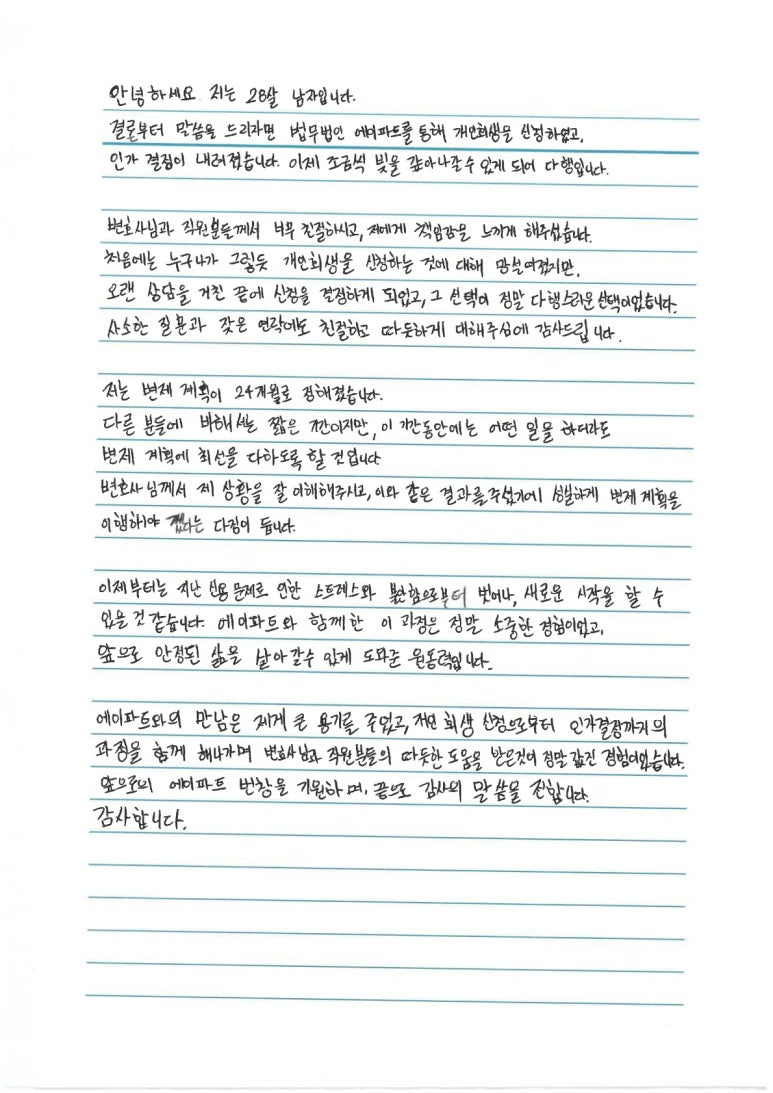 안녕하세요. 저는 28살 남자입니다.
결론부터 말씀을 드리자면 법무법인 에이파트를 통해 개인회생을 신청하였고,
인가 결정이 내려졌습니다. 이제 조금씩 빚을 갚아나갈수 있게 되어 다행입니다.
변호사님과 직원분들께서 너무 친절하시고, 저에게 책임감을 느끼게 해주셨습니다.
처음에는 누구나가 그렇듯 개인회생을 신청하는 것에 대해 망설여졌지만,
오랜 상담을 거친 끝에 신청을 결정하게 되었고, 그 선택이 정말 다행스러운 선택이었습니다.
사소한 질문과 잦은 연락에도 친절하고 따듯하게 대해주심에 감사드립니다.
저는 변제 계획이 24개월로 정해졌습니다.
다른 분들에 비해서는 짧은 기간이지만, 이 기간동안에는 어떤 일을 하더라도
변제 계획에 최선을 다하도록 할 것입니다
변호사님께서 제 상황을 잘 이해해주시고, 이와 같은 결과를 주셨기에 성실하게 변제 계획을
이행해야 겠다는 다짐이 듭니다.
이제부터는 지난 신용 문제로 인한 스트레스와 불안함으로부터 벗어나, 새로운 시작을 할 수
있을 것 같습니다. 에이파트와 함께한 이 과정은 정말 소중한 경험이었고,
앞으로 안정된 삶을 살아갈수 있게 도와준 원동력입니다.
에이파트와의 만남은 제게 큰 용기를 주었고, 개인 회생 신청으로부터 인가결정까지의
과정을 함께 해나가며 변호사님과 직원분들의 따듯한 도움을 받은것이 정말 값진 경험이었습니다.
앞으로의 에이파트 번창을 기원하며, 끝으로 감사의 말씀을 전합니다.
감사합니다.